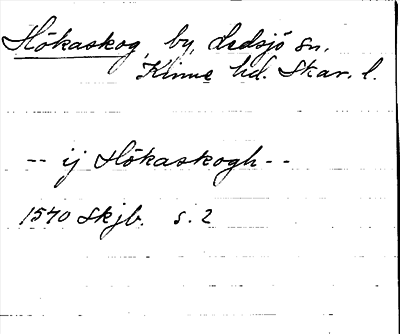 Hökaskog, by, Ledsjö sn.
Kinne hd. Skar. l.
-- ij Hökaskogh--
1540 Skjb. s. 2